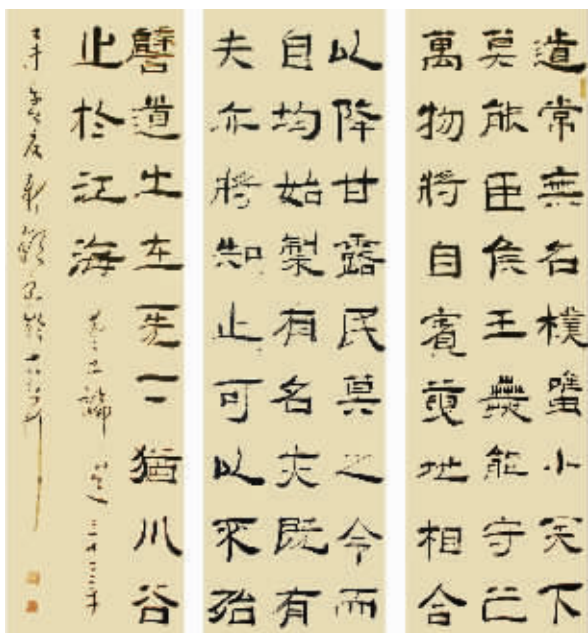 道常無名樸雖小天下
莫能臣侯王若能守之
萬物將自賓天地相合
以降甘露民莫之令而
自均始制有名亦既有
夫亦將知止可以不殆
譬道之在天下猶川谷
止於江海